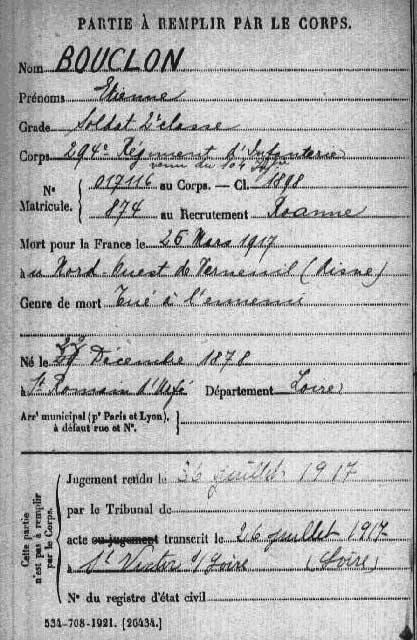 PARTIE À REMPLIR PAR LE CORPS.
Nom BOUCLON
Prénoms Etienne
Grade Soldat 2e classe
Corps 294e Régiment d'Infanterie
venu du 104
N° Matricule. 017116 au Corps. — Cl. 1898
874 au Recrutement Roanne
Mort pour la France le 26 Mars 1917
à au Nord-Ouest de Verneuil (Aisne)
Genre de mort Tué à l'ennemi
Né le 29 Décembre 1878
à St Romain d'Urfé Département Loire
Arrt municipal (pr Paris et Lyon),
à défaut rue et N°.
Cette partie n'est pas à remplir par le Corps.
Jugement rendu le 26 juillet 1917
par le Tribunal de
acte ou jugement transcrit le 26 juillet 1917
à St Victor s/Loire (Loire)
N° du registre d'état civil
534-708-1921. [26434.]